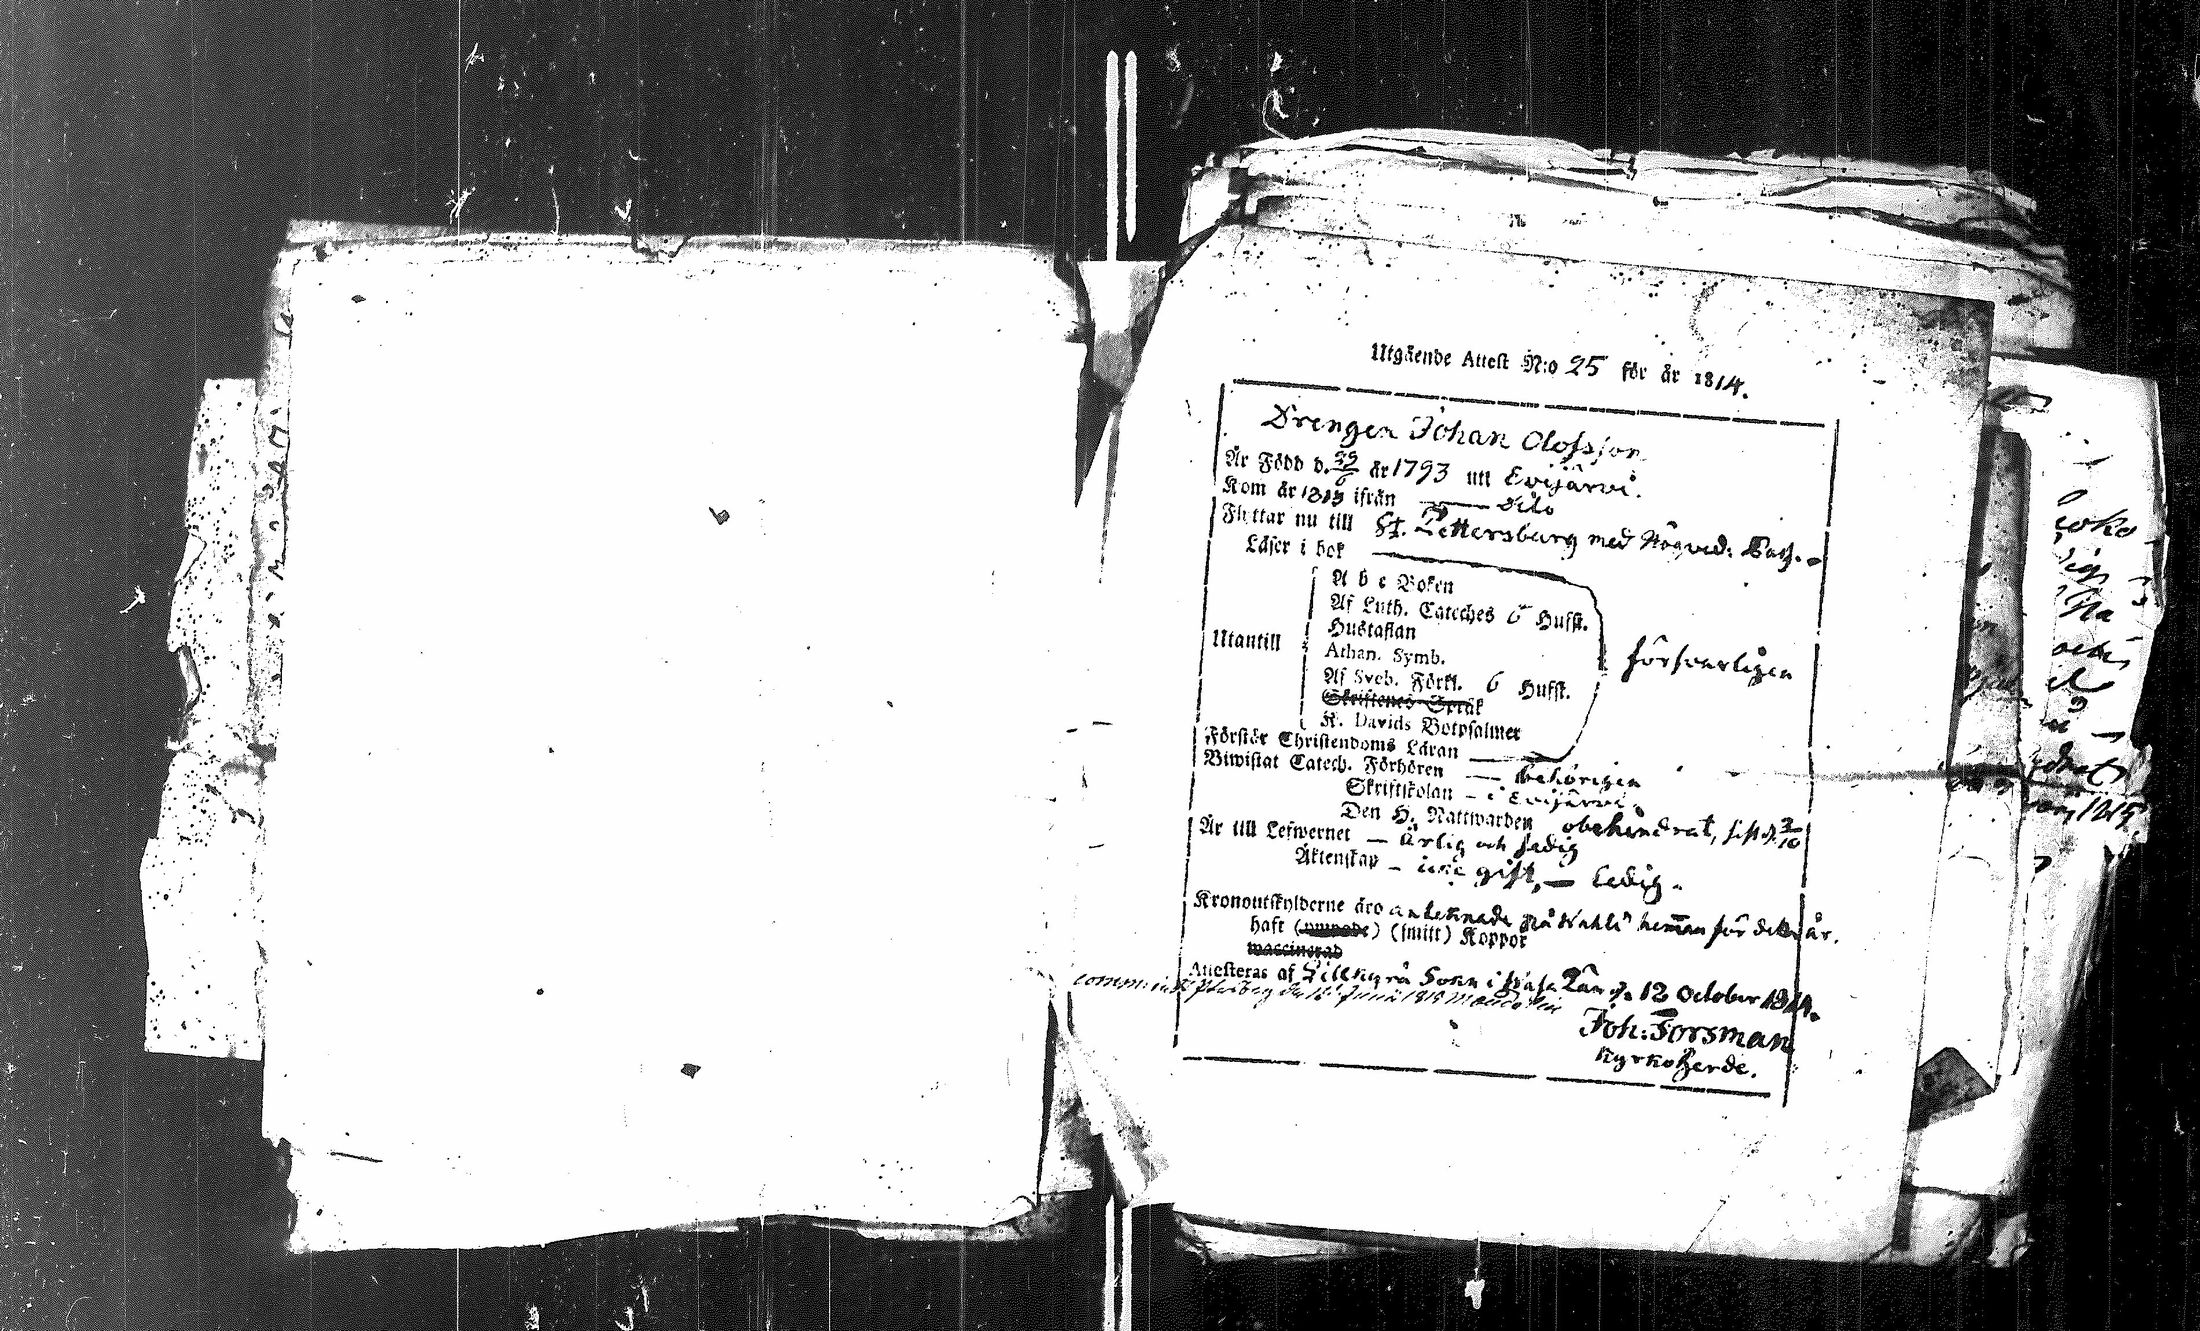 Utgående Attest N:o 25 för år 1814.
Drengen Johan Olofsson
Är Född d. 29/6 år 1793 uti Evijärvi.
Kom år 1813 ifrån — Dito
Flyttar nu till St. Pettersburg med
Läser i bok
A b c Boken
Af Luth. Cateches 6 Hufst.
Hustaflan
Utantill
Athan. Symb.
Af Sveb. Förkl. 6 Hufst.
Skriftenes Språk
K. Davids Botpsalmer
försvarligen
Förstår Christendoms Läran
Biwistat Catech. Förhören — behörigen
Skriftskolan – i Evijärvi.
Den H. Nattwarden obehindrat, sist d. 2/10
Är till Lefwernet — Ärlig och sedig
Äktenskap – icke gift, — Ledig.
Kronoutskylderne äro antecknade på hemman för detta år.
haft (ympade) (smitt) Koppor
waccinerad
Attesteras af Lillkyrå Sokn i Wasa Län d. 12 October 1814.
Joh: Forsman
Kyrkoherde.